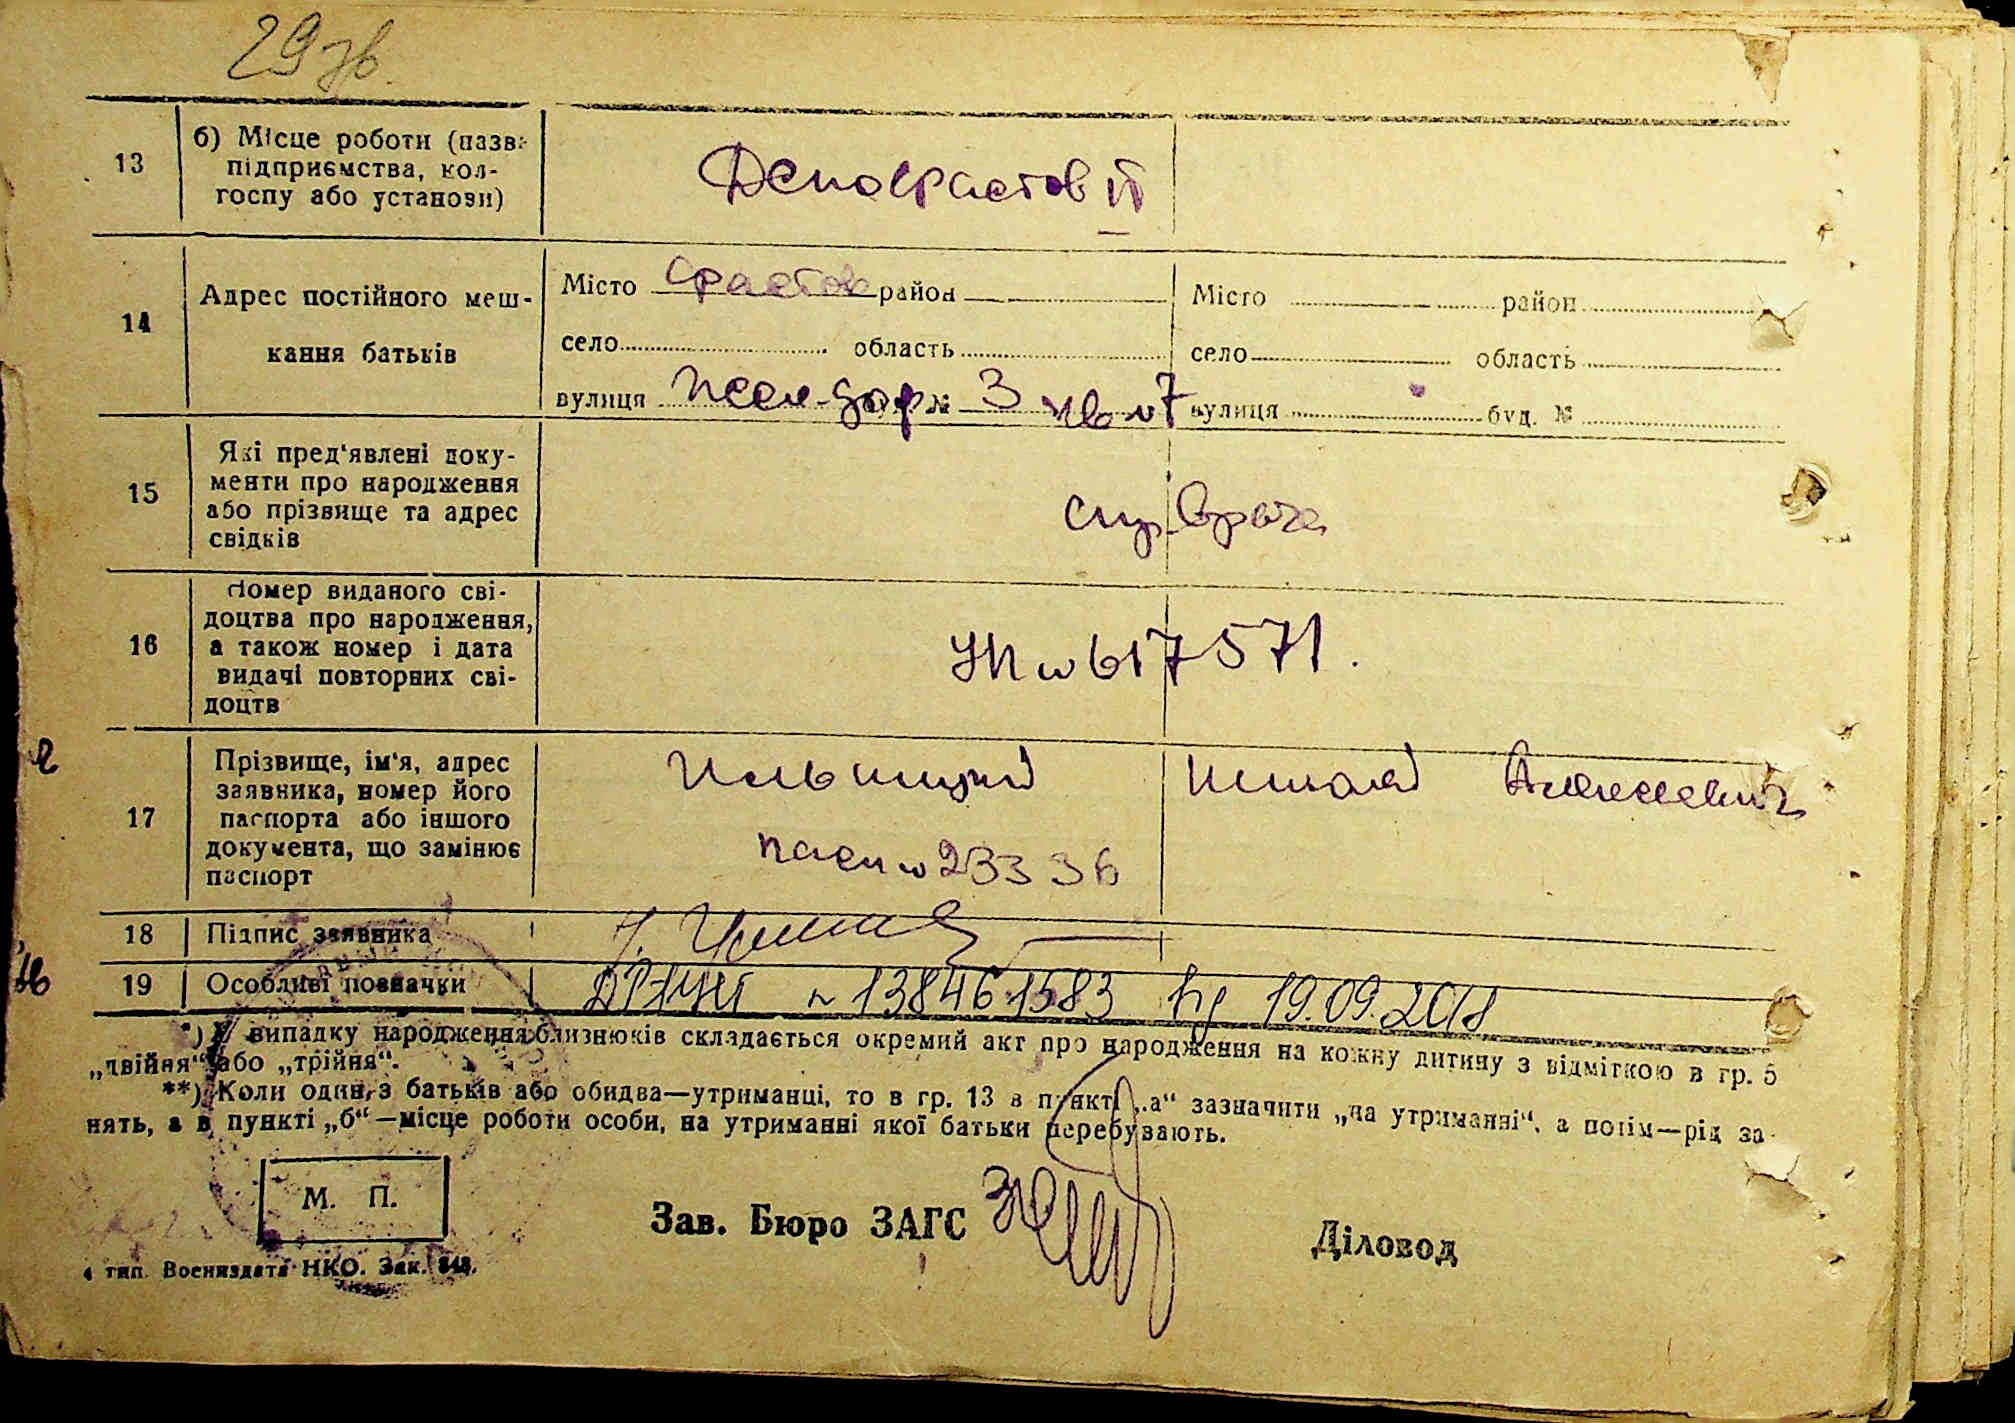 29зв.
13
б) Місце роботи (назва
підприємства, кол-
госпу або установи)
Депо Фастов II
14
Адрес постійного меш-
кання батьків
Місто Фастов район
село область
вулиця № 3 кв №7
Місто район
село область
вулиця буд. №
15
Які пред'явлені доку-
менти про народження
або прізвище та адрес
свідків
спр. врача
16
Номер виданого сві-
доцтва про народження,
а також номер і дата
видачі повторних сві-
доцтв
№ 617571.
17
Прізвище, ім'я, адрес
заявника, номер його
паспорта або іншого
документа, що замінює
паспорт
Алексеевич
пасп № 23336
18
Підпис заявника
19
Особливі позначки
№ 138461583 від 19.09.2018
*) У випадку народження близнюків складається окремий акт про народження на кожну дитину з відміткою в гр. 5
„двійня“ або „трійня“.
**) Коли один з батьків або обидва—утриманці, то в гр. 13 в пункті „а“ зазначити „на утриманні“, а потім—рід за-
нять, а в пункті „б“—місце роботи особи, на утриманні якої батьки перебувають.
М. П.
Зав. Бюро ЗАГС
Діловод
4 тип. Воениздата НКО. Зак. 848.